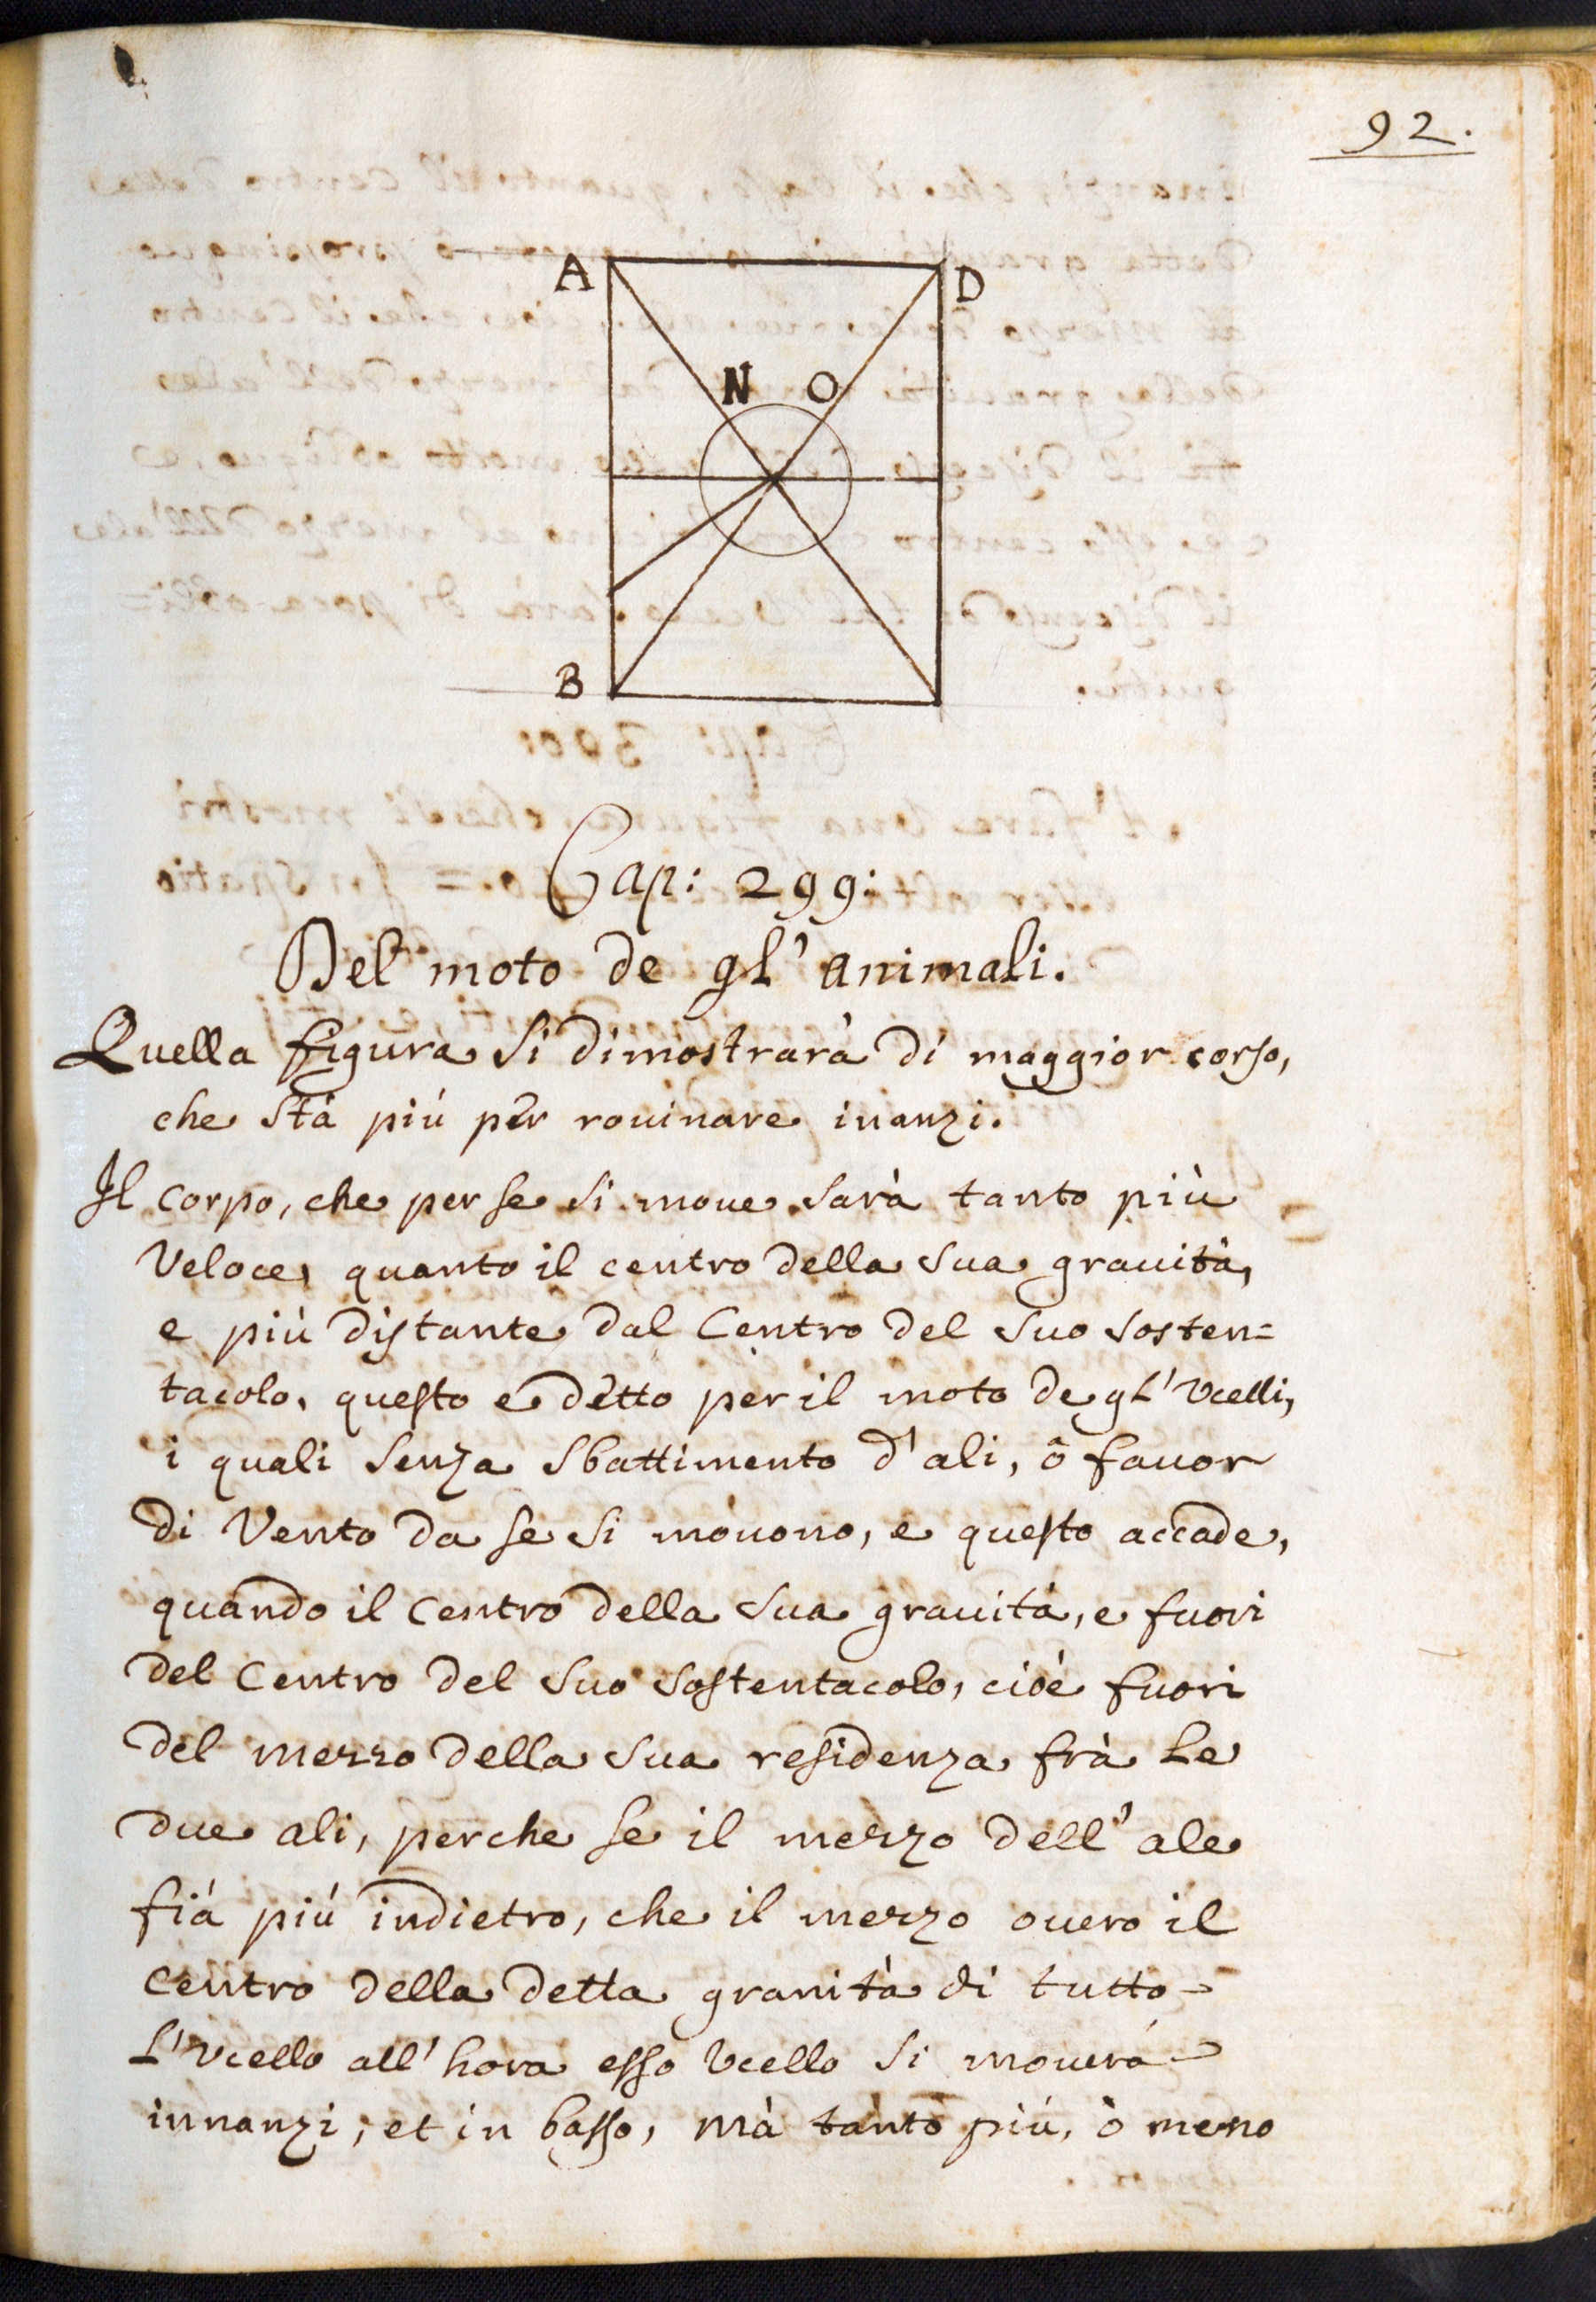 92.
A D
N O
B
Cap: 299:
Del moto de gl' animali.
Quella figura si dimostrarà di maggior corso,
che stà più per rouinare inanzi.
Il corpo, che per se si moue sarà tanto più
Veloce, quanto il centro della sua grauità,
e più distante dal Centro del suo sosten=
tacolo, questo è detto per il moto de gl' Vcelli,
i quali senza sbattimento d'ali, ò fauor
di Vento da se si mouono, e questo accade,
quando il centro della sua grauità, e fuori
del Centro del suo sostentacolo, cioè fuori
del mezzo della sua residenza frà le
due ali, perche se il mezzo dell' ale
fià più indietro, che il mezzo ouero il
centro della detta grauità di tutto
l'Vcello all' hora esso Vcello si mouerà
innanzi; et in basso, mà tanto più, ò meno